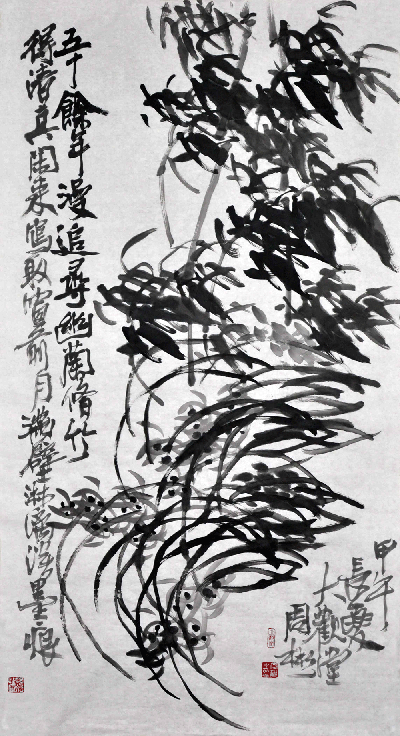 五十餘年漫追尋幽蘭脩竹
得清真閒来寫取窗前月滿壁淋漓墨痕
甲午
長夏
大觀堂
周彬